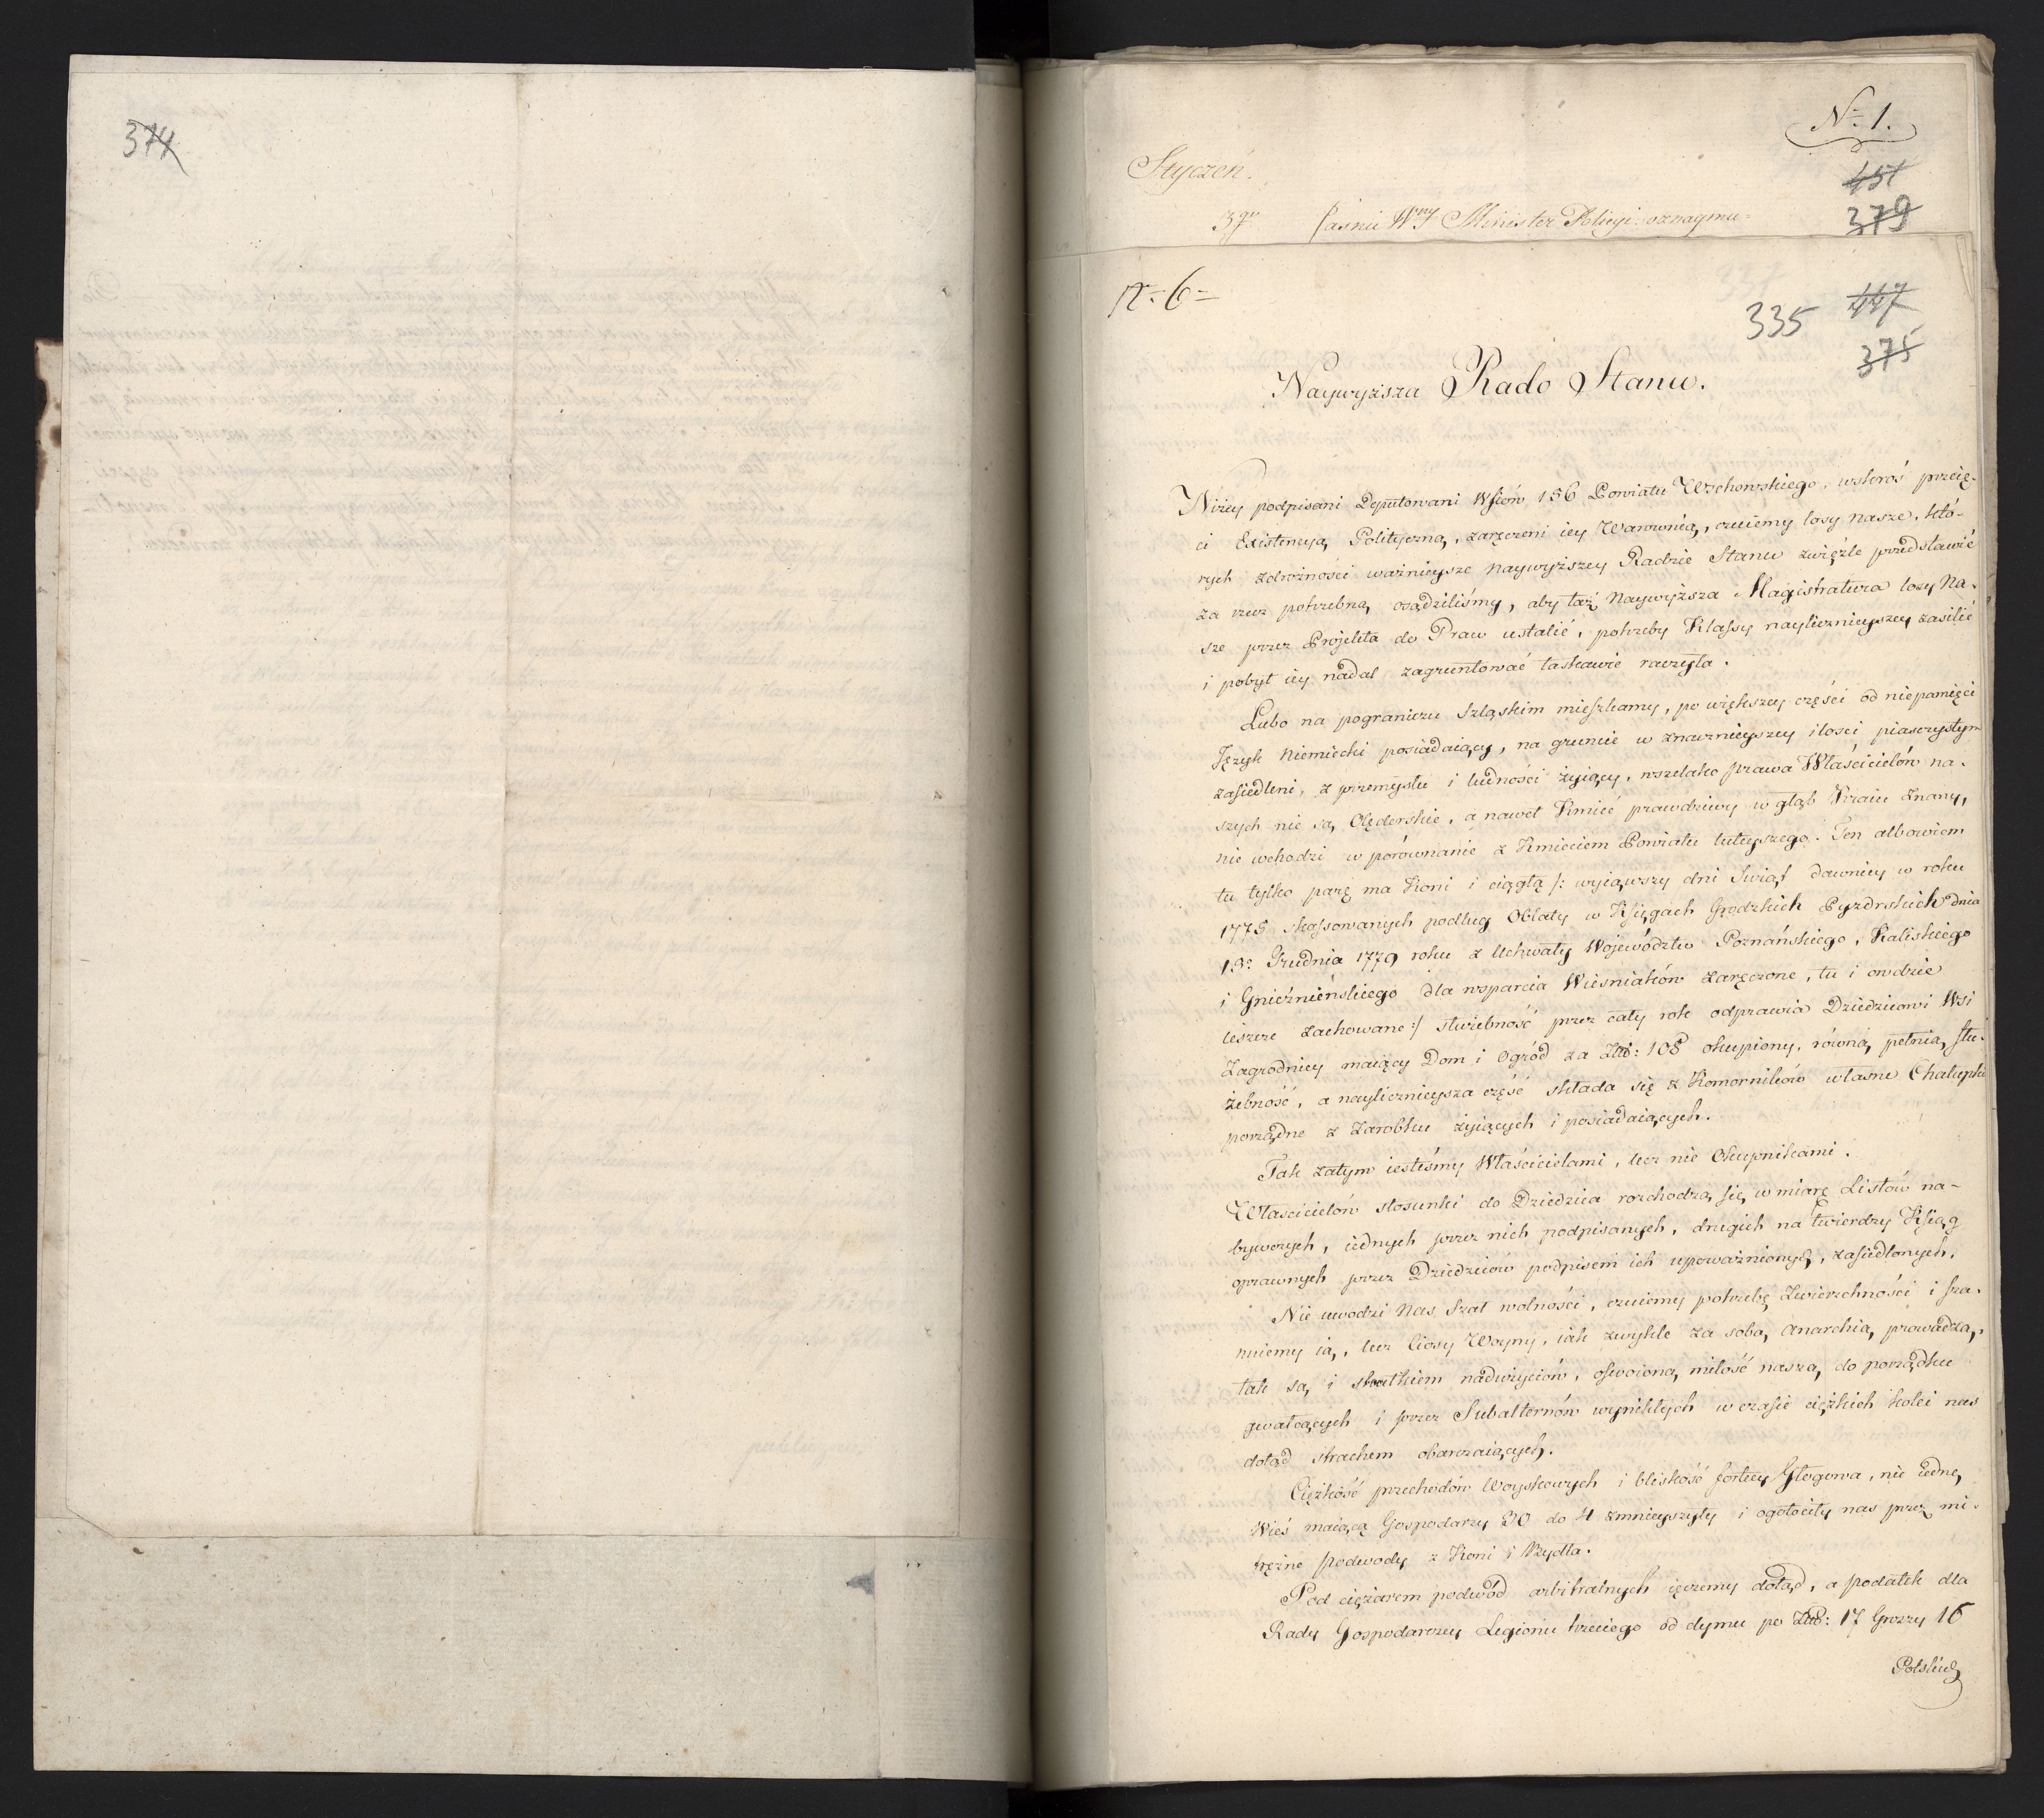 374
No 1.
Styczeń.
457
379
3go Jaśnie Wny Minister Policyi oznaymu=
No 6=
335 447
375
Naywyższa Rado Stanu.
Niżey podpisani Deputowani Wsiów 156 Powiatu Wschowskiego, wskroś przeię-
ci Existencyą Polityczną, zaręczeni iey Warownią, czuiemy losy nasze, któ-
rych zdrożności ważnieysze Naywyższey Radzie Stanu zwięźle przedstawić
za rzecz potrzebną osądziliśmy, aby taż Naywyższa Magistratura losy Na-
sze przez Projekta do Praw ustalić, potrzeby Klassy naylicznieyszey zasilić
i pobyt iey nadal zagruntować łaskawie raczyła.
Lubo na pograniczu Szląskim mieszkamy, po większey części od niepamięci
Język Niemiecki posiadaiący, na gruncie w znacznieyszey ilości piasczystym
zasiedleni, z przemysłu i ludności żyiący, wszelako prawa Właścicielów na-
szych nie są Olęderskie, a nawet Kmieć prawdziwy w głąb Kraiu znany,
nie wchodzi w porównanie z Kmieciem Powiatu tuteyszego. Ten albowiem
tu tylko parę ma Koni i ciągłą /: wyiąwszy dni Świąt dawniey w roku
1775 skassowanych podług Oblaty w Xsięgach Grodzkich Pyzdrskich dnia
13o Grudnia 1779 roku z Uchwały Województw Poznańskiego, Kaliskiego
i Gnieźnieńskiego dla wsparcia Wieśniaków zaręczone, tu i owdzie
ieszcze zachowane :/ służebność przez cały rok odprawia Dziedzicowi Wsi
Zagrodnicy maiący Dom i Ogród za Zło: 108 okupiony, równą pełnią słu-
żebność, a naylicznieysza część składa się z Komorników własne Chałupki
porządne z zarobku żyiących i posiadaiących.
Tak zatym iesteśmy Właścicielami, lecz nie Okupnikami.
Właścicielów stosunki do Dziedzica rozchodzą się w miarę Listów na-
bywczych, iednych przez nich podpisanych, drugich na twierdzy Xsiąg
oprawnych przez Dziedziców podpisem ich upoważnionych, zasiedlonych.
Nie uwodzi Nas Szał wolności, czuiemy potrzebę Zwierzchności i sza-
nuiemy ią, lecz Ciosy Woyny, iak zwykle za sobą anarchią prowadzą,
tak są i skutkiem nadużyciów, oswoioną miłość naszą do porządku
gwałcących i przez Subalternów wynikłych w czasie ciężkich kolei nas
dotąd strachem obarczaiących.
Ciężkość przechodów Woyskowych i bliskość fortecy Głogowa, nie iedną
Wieś maiącą Gospodarzy 30 do 4 zmnieyszyły i ogołociły nas przez mi-
trężne podwody z Koni i Bydła.
Pod ciężarem podwód arbitralnych ięczemy dotąd, a podatek dla
Rady Gospodarczey Legionu trzeciego od dymu po Zło: 17 Groszy 16
Polskich